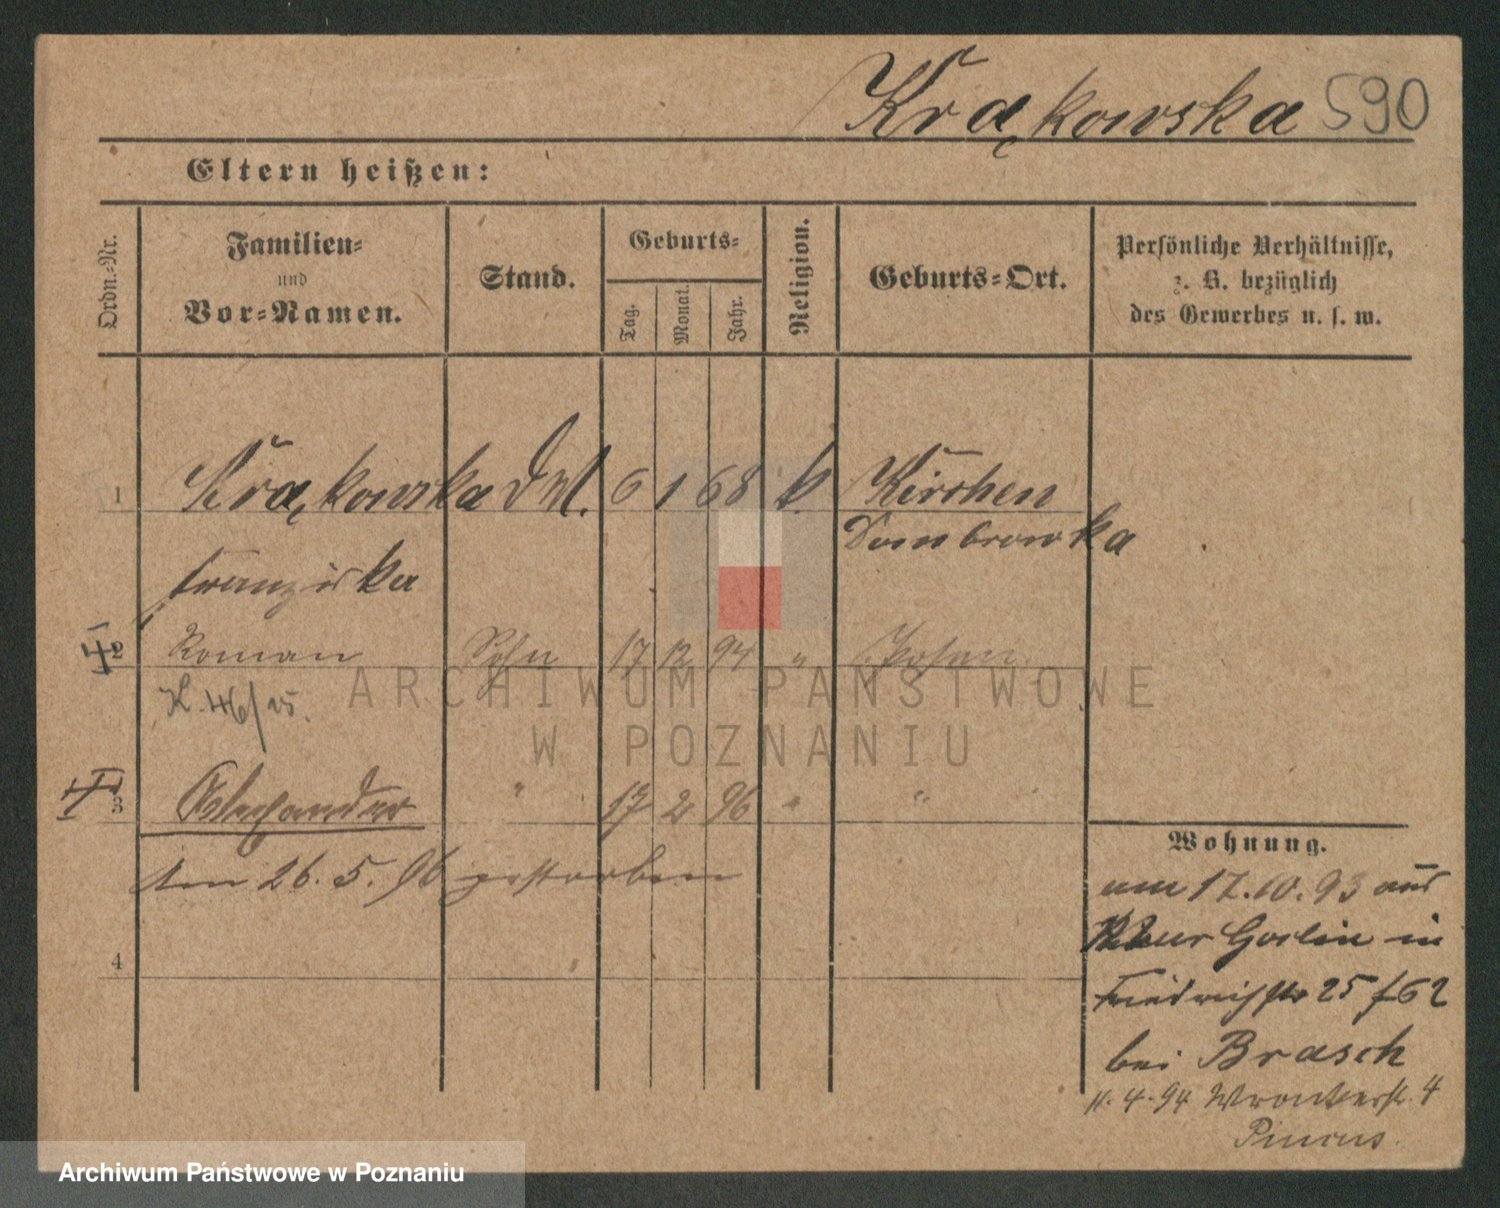 Krąkowska 590
Eltern heißen:
Ordn.-Nr.
Familien-
und
Vor-Namen.
Stand.
Geburts-
Tag.
Monat.
Jahr.
Religion.
Geburts-Ort.
Persönliche Verhältnisse,
z. B. bezüglich
des Gewerbes u. s. w.
1 Krąkowska 6 1 68 k. Kirchen
Dombrowka
Franziska
2 Roman Sohn 17 12 94 " Posen
K. 46/95.
3 Alexander " 17 2 96 " "
Am 26. 5. 96 gestorben
4
Wohnung.
am 17.10.93 aus
Goslin in
Friedrichstr 25
bei Brasch
11.4.94 Wronkerstr. 4
Pincus.
ARCHIWUM PAŃSTWOWE
W POZNANIU
Archiwum Państwowe w Poznaniu